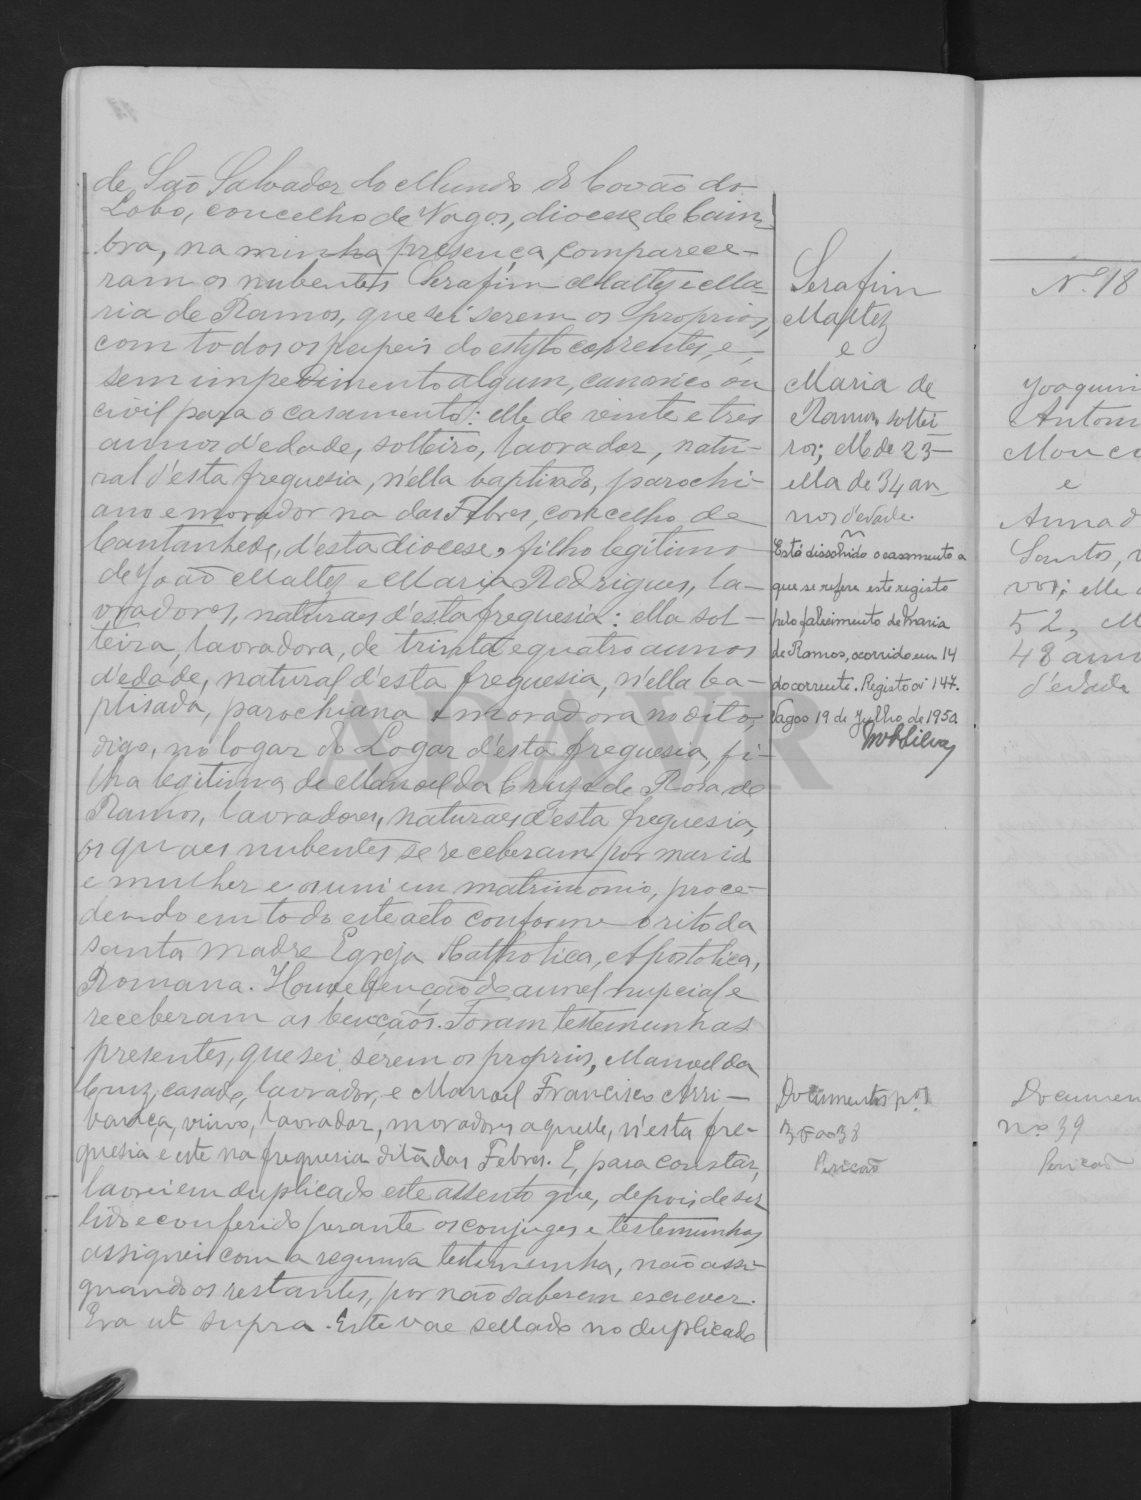 de São Salvador do Mundo do Covão do
Lobo, concelho de Vagos, diocese de Coim-
bra, na minha presença, comparece-
ram os nubentes Serafim Maltez e Ma-
ria de Ramos, que sei serem os proprios,
com todos os papeis do estylo correntes, e,
sem impedimento algum, canonico ou
civil para o casamento: elle de vinte e tres
annos d'edade, solteiro, lavrador, natu-
ral d'esta freguesia, n'ella baptisado, parochi-
ano e morador na das Febres, concelho de
Cantanhede, d'esta diocese, filho legitimo
de João Maltez e Maria Rodrigues, la-
vradores, naturaes d'esta freguesia: ella sol-
teira, lavradora, de trinta e quatro annos
d'edade, natural d'esta freguesia, n'ella ba-
ptisada, parochiana e moradora no dito,
digo, no logar do Logar d'esta freguesia, fi-
lha legitima de Manoel da Cruz e de Rosa de
Ramos, lavradores, naturaes d'esta freguesia,
os quaes nubentes se receberam por marido
e mulher e os uni em matrimonio, proce-
dendo em todo este acto conforme o rito da
santa madre Egreja Catholica, Apostolica,
Romana. Houve benção de annel nupcial e
receberam as bençãos. Foram testemunhas
presentes, que sei serem os proprios, Manoel da
Cruz, casado, lavrador, e Manoel Francisco Arri-
bança, viuvo, lavrador, moradores aquelle, n'esta fre-
guesia e este na freguesia dita das Febres. E, para constar,
lavrei em duplicado este assento que, depois de ser
lido e conferido perante os conjuges e testemunhas
assignei com a segunda testemunha, não assi-
gnando os restantes, por não saberem escrever.
Era ut supra. Este vae sellado no duplicado
Serafim
Maltez
e
Maria de
Ramos, soltei
ros; elle de 23
ella de 34 an
nos d'edade.
Está dissolvido o casamento a
que se refere este registo
pelo falecimento de Maria
de Ramos, ocorrido em 14
do corrente. Registo nº 147.
Vagos 19 de Julho de 1950
Silva
Documentos nos
38
Nº 18
Joaquim
Antoni
Mouco
e
Anna d
Santos, v
vos; elle
52,
48 ann
d'edade
Documen
nº 39